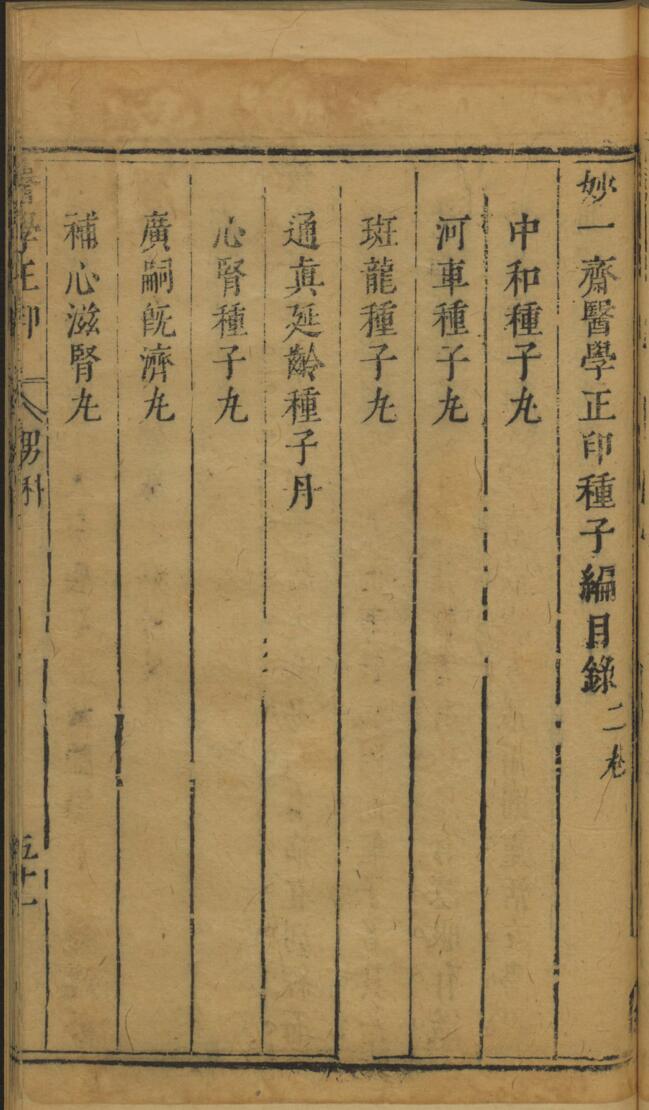 妙一齋醫學正印種子編目錄 二卷
中和種子𠂆
河車種子𠂆
斑龍種子𠂆
通眞延齡種子丹
心腎種子𠂆
廣嗣既濟𠂆
補心滋腎𠂆
醫學正印 男科 五十一